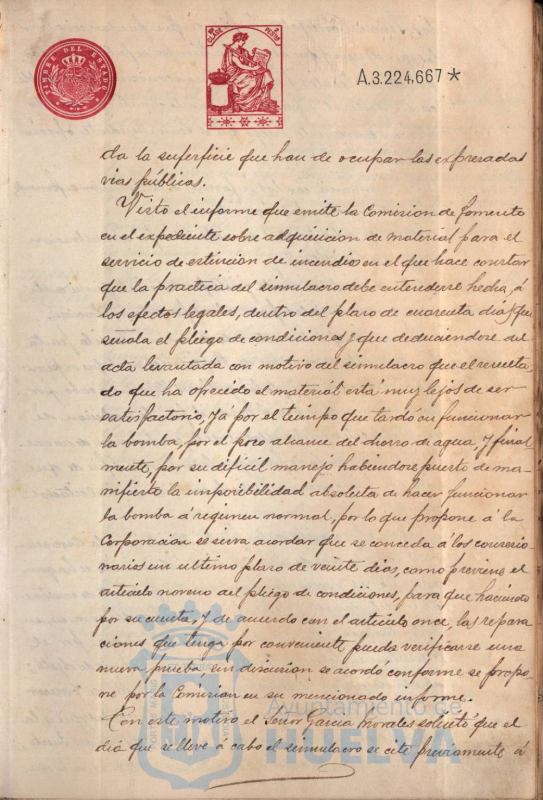 TIMBRE DEL ESTADO
A.3.224.667*
da la superficie que han de ocupar las expresadas
vias públicas.
Visto el informe que emite la Comision de Fomento
en el expediente sobre adquisicion de material para el
servicio de estincion de incendios en el que hace constar
que la practica del simulacro debe entenderse hecha, á
los efectos legales, dentro del plazo de cuarenta dias que
señala el pliego de condiciones y que deduciendose del
acta levantada con motivo del simulacro que el resulta-
do que ha ofrecido el material está muy lejos de ser
satisfactorio, ya por el tiempo que tardó en funcionar
la bomba, por el poco alcance del chorro de agua, y final-
mente, por su dificil manejo habiendose puesto de ma-
nifiesto la imposibilidad absoluta de hacer funcionar
la bomba á regimen normal, por lo que propone á la
Corporacion se sirva acordar que se conceda á los concesio-
narios un ultimo plazo de veinte dias, como previene el
articulo noveno del pliego de condiciones, para que haciendo
por su cuenta, y de acuerdo con el articulo once, las repara-
ciones que tenga por conveniente pueda verificarse una
nueva prueba, sin discusion se acordó conforme se propo-
ne por la Comision en su mencionado informe.
Con este motivo el Señor Garcia Morales solicitó que el
dia que se lleve á cabo el simulacro se cite previamente á
Ayuntamiento de
HUELVA